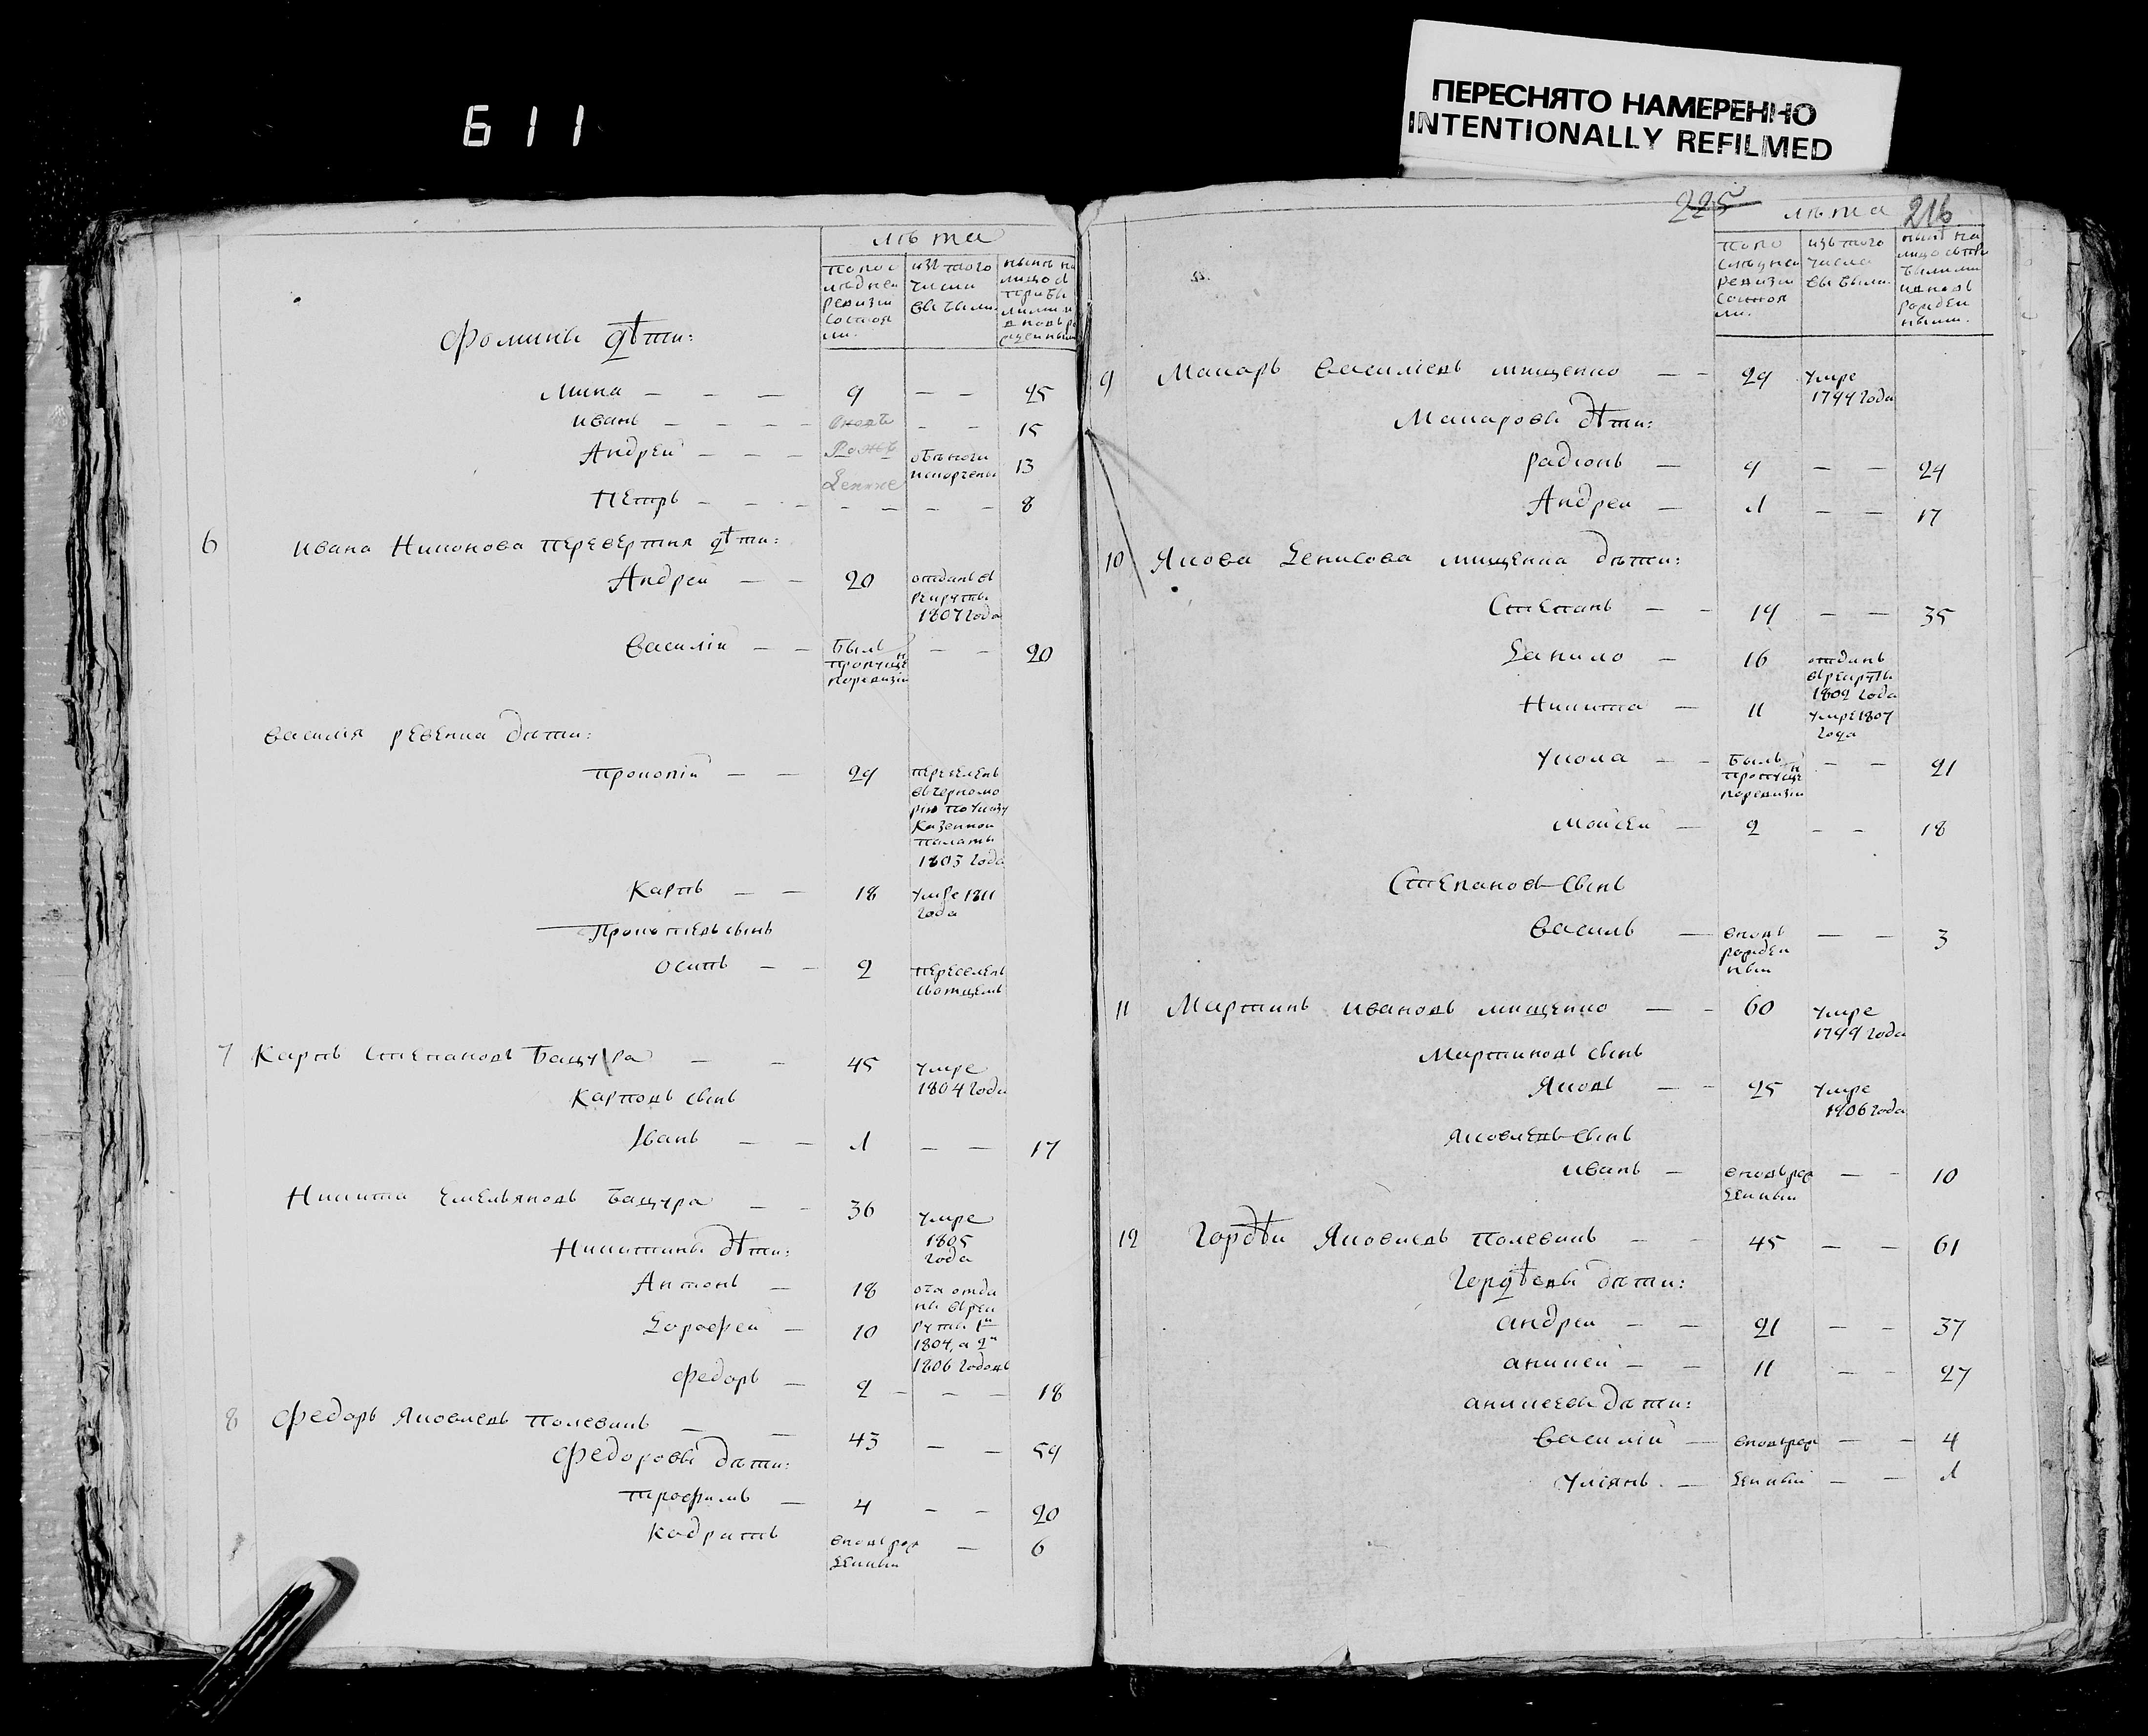 611
ПЕРЕСНЯТО НАМЕРЕННО
INTENTIONALLY REFILMED
лѣта
по пос
лѣдней
ревизіи
состоя
ли.
изъ того
числа
выбыли.
Фомины дѣти:
Мина — — — 9 — — 25
иванъ — — — вновь — — 15
Андрей — — — Рож 13
Денные
Петръ — — — — — — — 8
6 ивана Никонова перевертня дѣти:
Андрей — — 20 отданъ въ
рекруты
1807 года
Василій — — былъ — — 20
пропуще
поревизіи
василія ревенка дѣти:
прокопій — — 29 переселенъ
въ черномо
рію по указу
Казенной
палаты
1803 года
Карпъ — — 18 умре 1811
года
Прокопіевъ сынъ
осипъ — — 2 переселенъ
сотцемъ
7 Карпъ степановъ Бацура — — 45 умре
1804 года
Карповъ сынъ
Іванъ — — 1 — — 17
Никита Емельяновъ Бацура — — 36 умре
1805
года
Никитины дѣти:
Антонъ — 18 оба отда
ны врек
Дорофей — 10 руты 1й
1804, а 2й
1806 годовъ
Федоръ — 2 — — — 18
8 Федоръ Яковлевъ полевикъ — — 43 — — 59
Федоровы дѣти:
трофимъ — 4 — — 20
кодратъ вновь рож — 6
денный
225 216
лѣта
по по
слѣдней
ревизіи
состоя
ли.
изъ того
числа
выбыли.
нынѣ на
лицо съ при
былыми
и вновь
рожден
ными.
9 Макаръ василіевъ мищенко — — 29 умре
1799 года
Макаровы дѣти:
радіонъ — 9 — — 24
Андрей — 1 — — 17
10 Якова Денисова мищенка дѣти:
Степанъ — — 19 — — 35
Данило — 16 отданъ
в рекруты
1802 года
Никита — 11 умре 1807
года
Укола — — былъ — — 21
пропуще
поревизіи
Мойсей — 2 — — 18
Степановъ сынъ
василь — вновь — — 3
рожден
ный
11 Мартинъ ивановъ мищенко — — 60 умре
1799 года
Мартиновъ сынъ
Яковъ — — 25 умре
1806 года
Яковлевъ сынъ
иванъ — вновь рож — — 10
денный
12 Гордѣй Яковлевъ полевикъ — — 45 — — 61
Гордѣевы дѣти:
андрей — — 21 — — 37
аникей — — 11 — — 27
аникеевы дѣти:
василій — вновьрож — — 4
улянъ. — денный — — 1